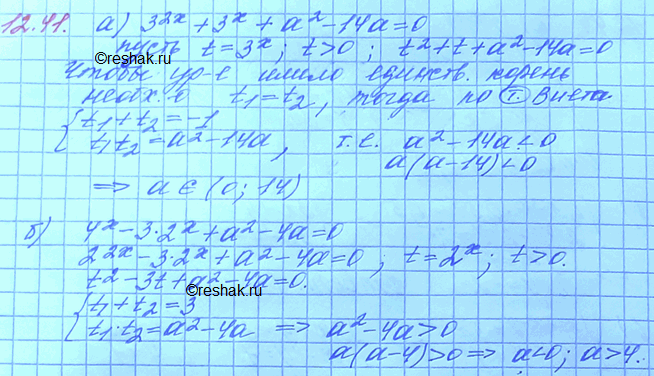 12.41. а) 3^{2x} + 3^x + a² - 14a = 0
пусть t = 3^x; t > 0; t² + t + a² - 14a = 0
Чтобы ур-е имело единств. корень
необх-о t₁ = t₂, тогда по т. Виета
{ t₁ + t₂ = -1
t₁t₂ = a² - 14a, т.е. a² - 14a < 0
a(a - 14) < 0
⇒ a ∈ (0; 14)
reshak.ru
б) 4^x - 3·2^x + a² - 4a = 0
2^{2x} - 3·2^x + a² - 4a = 0; t = 2^x; t > 0.
t² - 3t + a² - 4a = 0.
reshak.ru
{ t₁ + t₂ = 3
t₁·t₂ = a² - 4a ⇒ a² - 4a > 0
a(a - 4) > 0 ⇒ a < 0; a > 4.